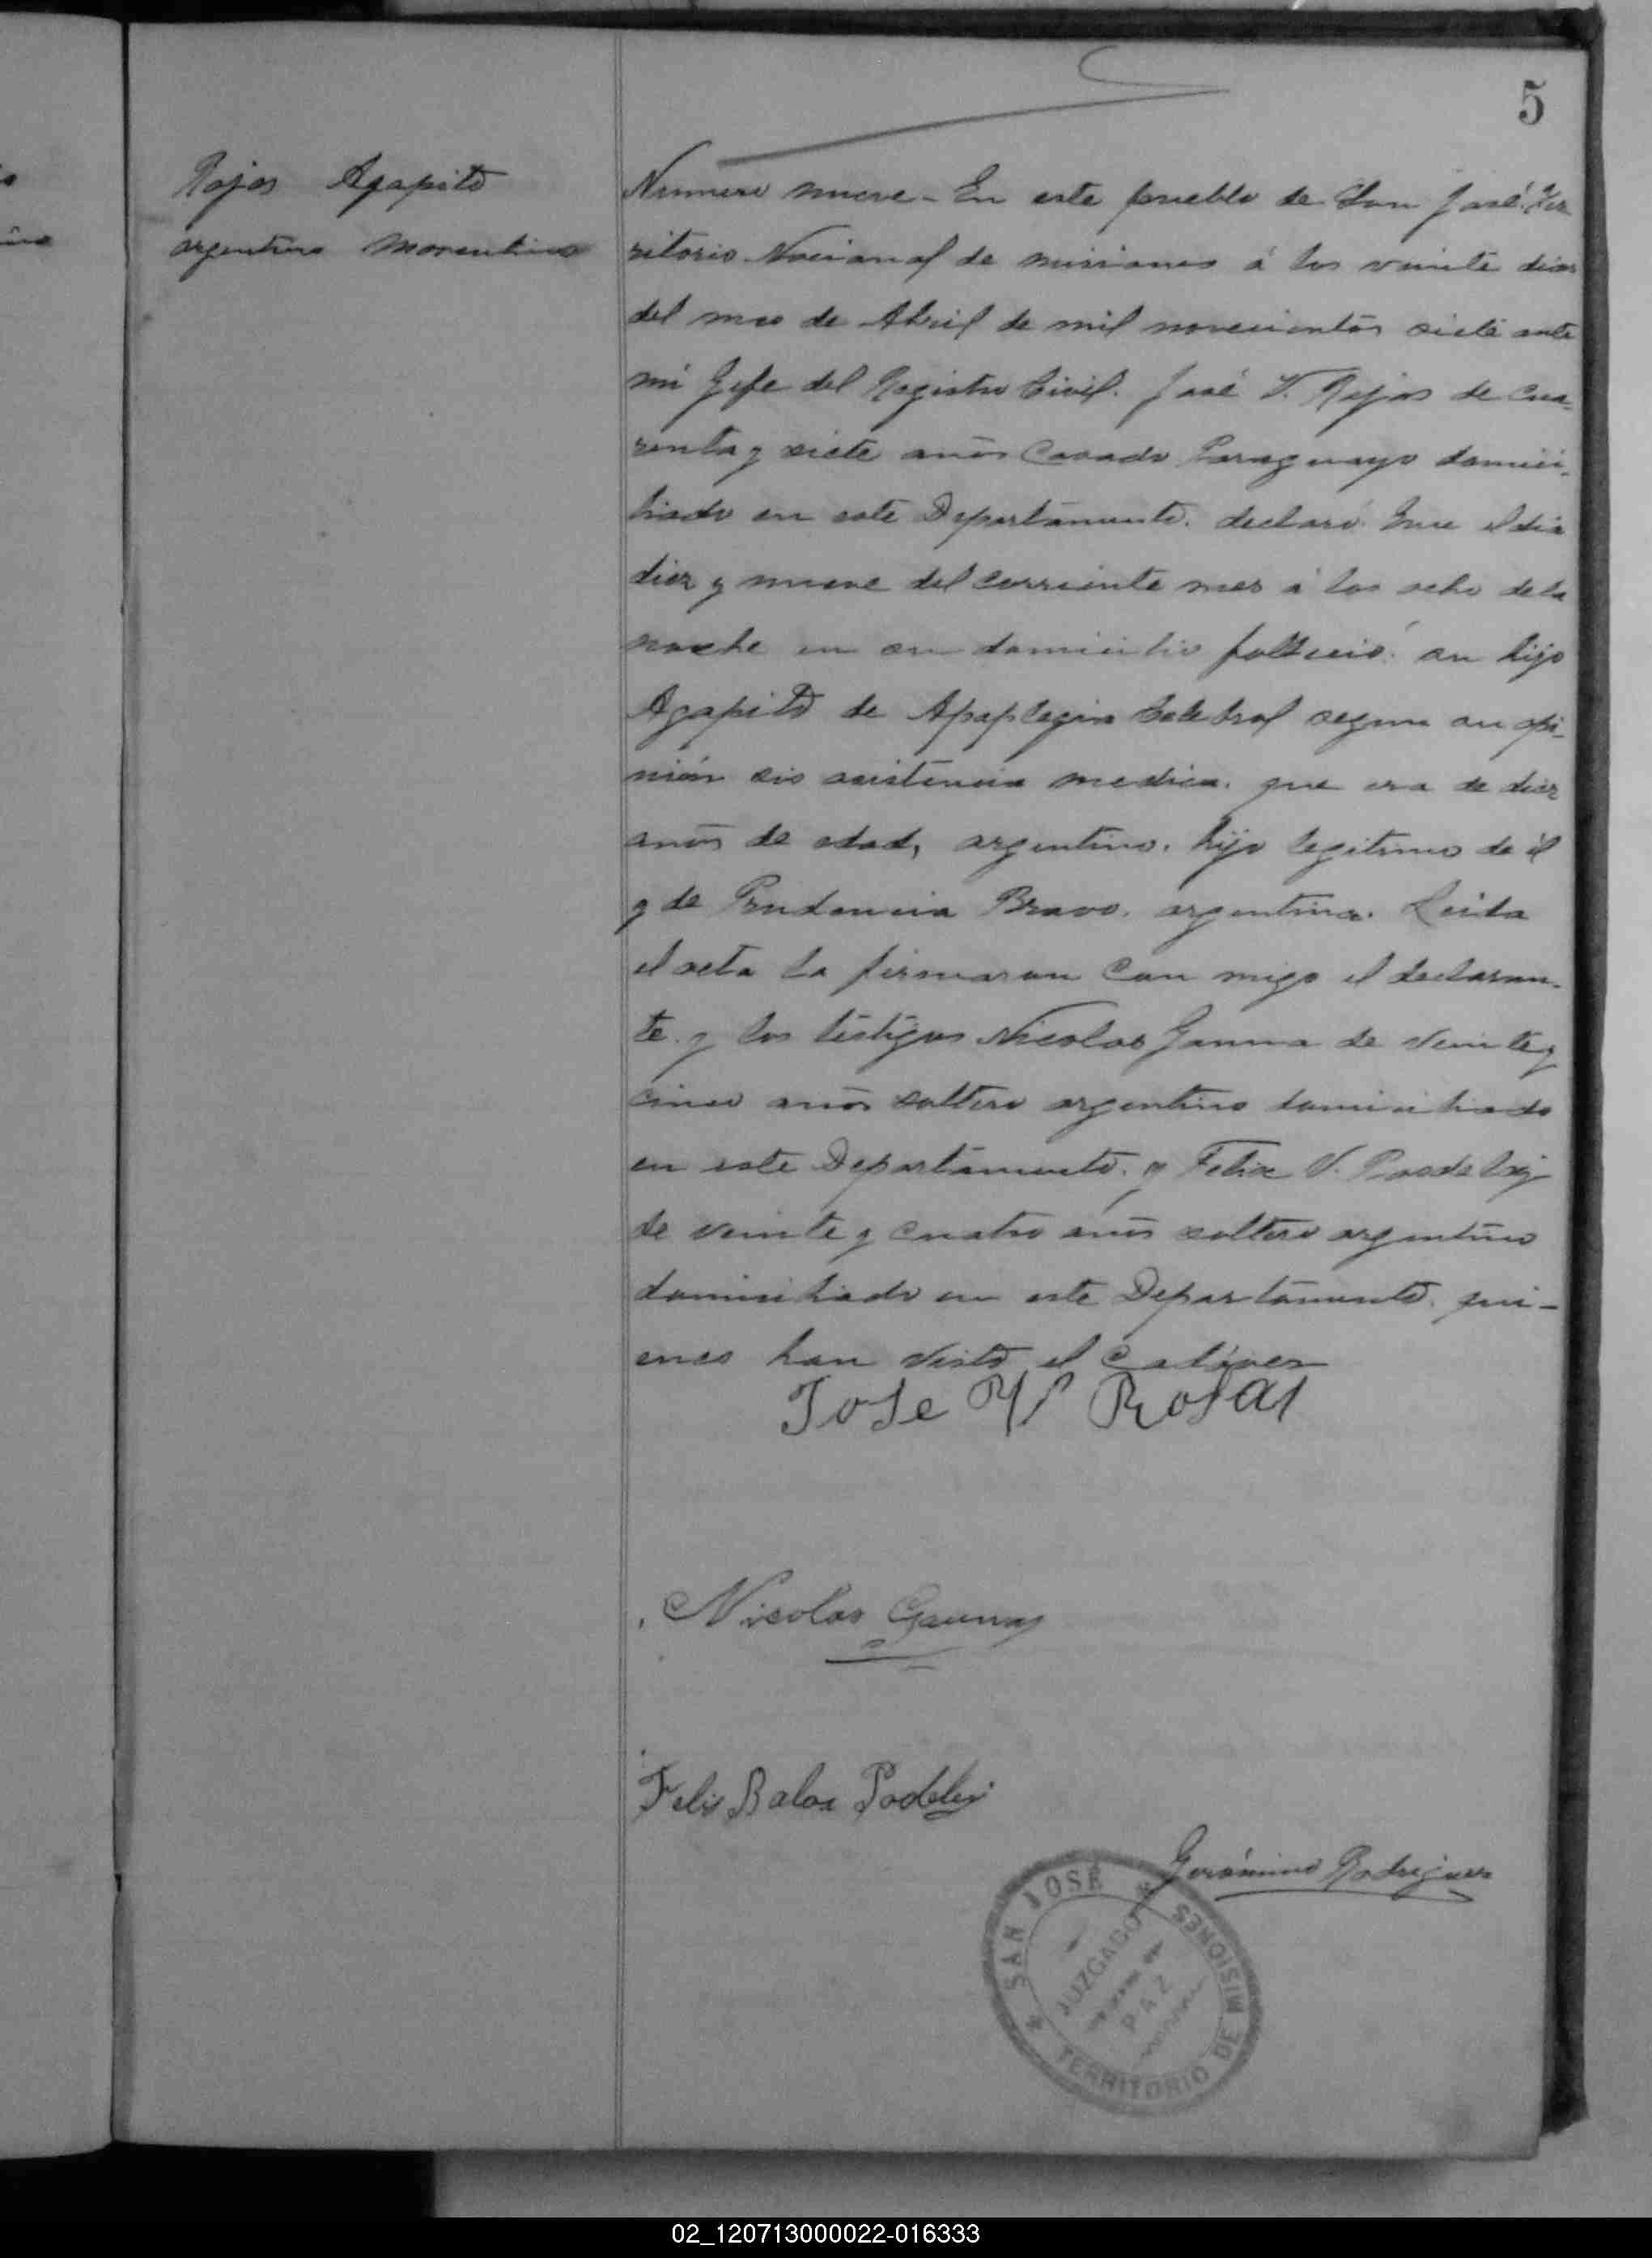 5
Rojas Agapito
argentino
Numero nueve - En este pueblo de San José. Ter
ritorio Nacional de misiones á los veinte dias
del mes de Abril de mil novecientos siete ante
mi Gefe del Registro Civil. José V. Rojas de cua-
renta y siete anõs Casado Paraguayo domici-
liado en este Departamento. declaró. Que el dia
diez y nueve del corriente mes á las ocho de la
noche en su domicilio falleció. su hijo
Agapito de segun su opi-
nión sin asistencia medica. que era de diez
anõs de edad, argentino. hijo legitimo de él
y de Prudencia Bravo. argentina. Leida
el acta la firmaron con migo el declaran-
te. y los testigos Nicolas Gauna de veinte y
cinco anõs soltero argentino domiciliado
en este Departamento. y Felix V.
de veinte y cuatro anõs soltero argentino
domiciliado en este Departamento. qui-
enes han visto el
Jose Rojas
Nicolas Gauna
Felis
Gerónimo Rodriguez
SAN JOSÉ
JUZGADO
PAZ
TERRITORIO DE MISIONES
02_120713000022-016333